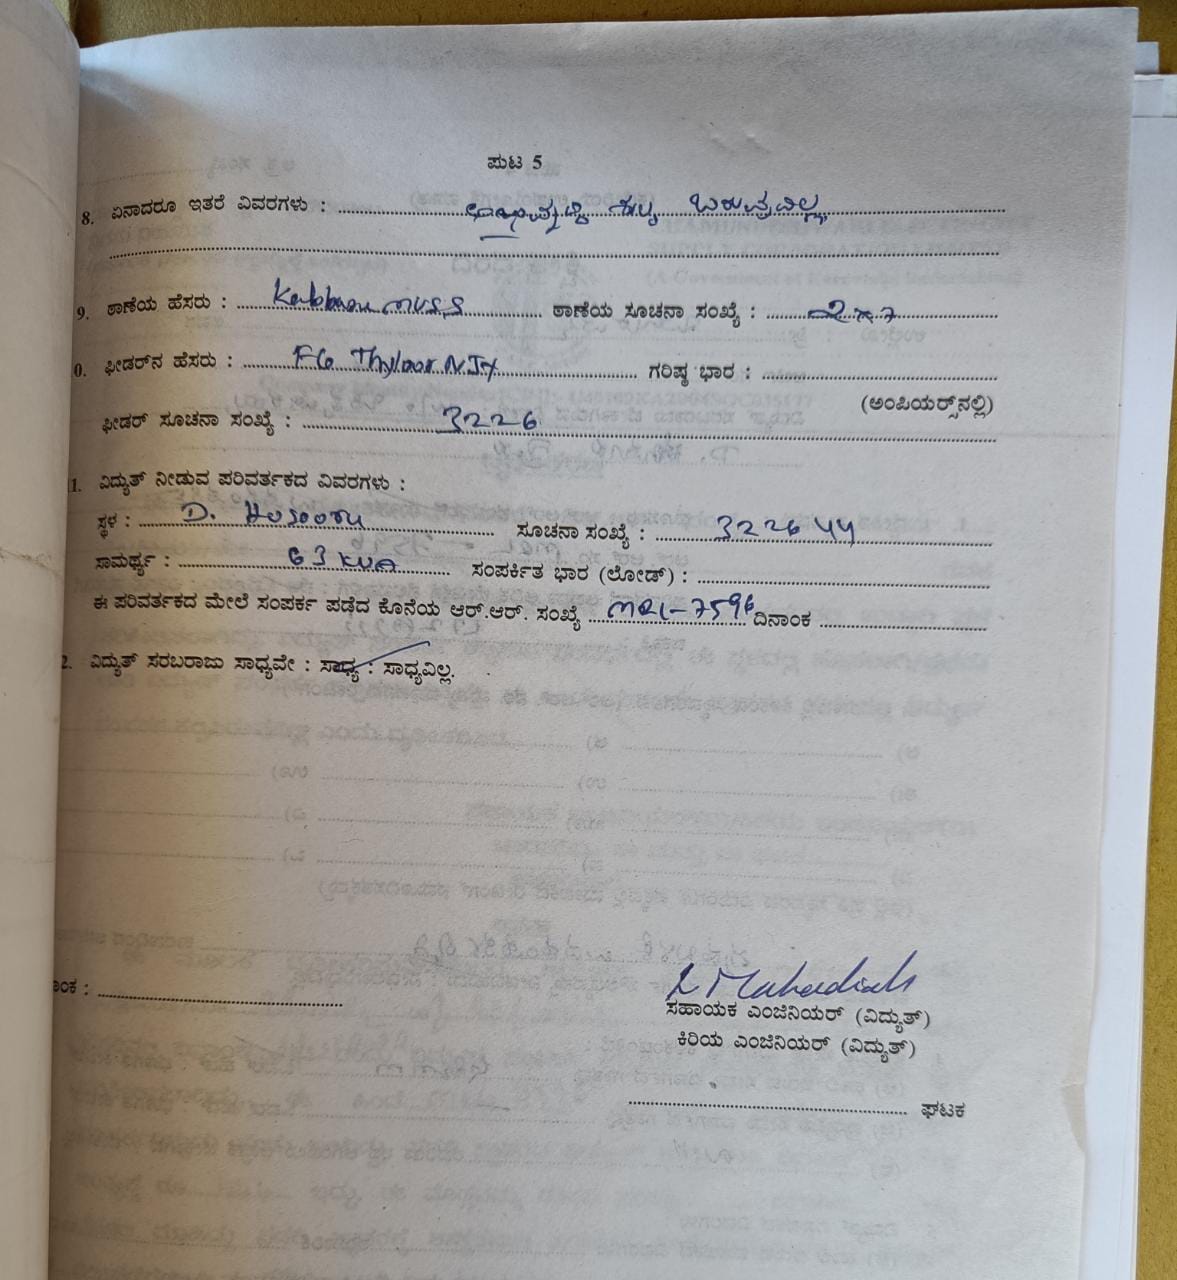 ಪುಟ 5
8. ಏನಾದರೂ ಇತರೆ ವಿವರಗಳು : ಬರುವುದಿಲ್ಲ
9. ಠಾಣೆಯ ಹೆಸರು : MUSS ಠಾಣೆಯ ಸೂಚನಾ ಸಂಖ್ಯೆ :
0. ಫೀಡರ್‌ನ ಹೆಸರು : F6 NJY ಗರಿಷ್ಠ ಭಾರ :
(ಅಂಪಿಯರ್ಸ್‌ನಲ್ಲಿ)
ಫೀಡರ್ ಸೂಚನಾ ಸಂಖ್ಯೆ : 3226
1. ವಿದ್ಯುತ್ ನೀಡುವ ಪರಿವರ್ತಕದ ವಿವರಗಳು :
ಸ್ಥಳ : D. Hosooru ಸೂಚನಾ ಸಂಖ್ಯೆ : 322644
ಸಾಮರ್ಥ್ಯ : 63 KVA ಸಂಪರ್ಕಿತ ಭಾರ (ಲೋಡ್) :
ಈ ಪರಿವರ್ತಕದ ಮೇಲೆ ಸಂಪರ್ಕ ಪಡೆದ ಕೊನೆಯ ಆರ್.ಆರ್. ಸಂಖ್ಯೆ 7596 ದಿನಾಂಕ
2. ವಿದ್ಯುತ್ ಸರಬರಾಜು ಸಾಧ್ಯವೇ : ಸಾಧ್ಯ : ಸಾಧ್ಯವಿಲ್ಲ.
ಾಂಕ :
ಸಹಾಯಕ ಎಂಜಿನಿಯರ್ (ವಿದ್ಯುತ್)
ಕಿರಿಯ ಎಂಜಿನಿಯರ್ (ವಿದ್ಯುತ್)
ಘಟಕ